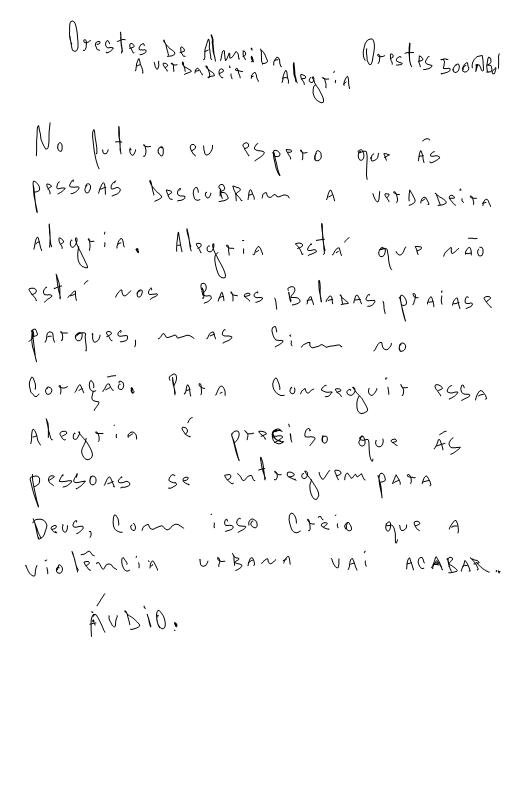 Orestes De Almeida
A verdadeira Alegria
Orestes
No futuro eu espero que às
pessoas descubram a verdadeira
Alegria. Alegria está que não
está nos Bares, Baladas, praias e
parques, mas Sim no
Coração. Para Conseguir essa
Alegria é preciso que ás
pessoas se entreguem para
Deus, Com isso Crêio que a
violência urbana vai acabar.
Áudio.